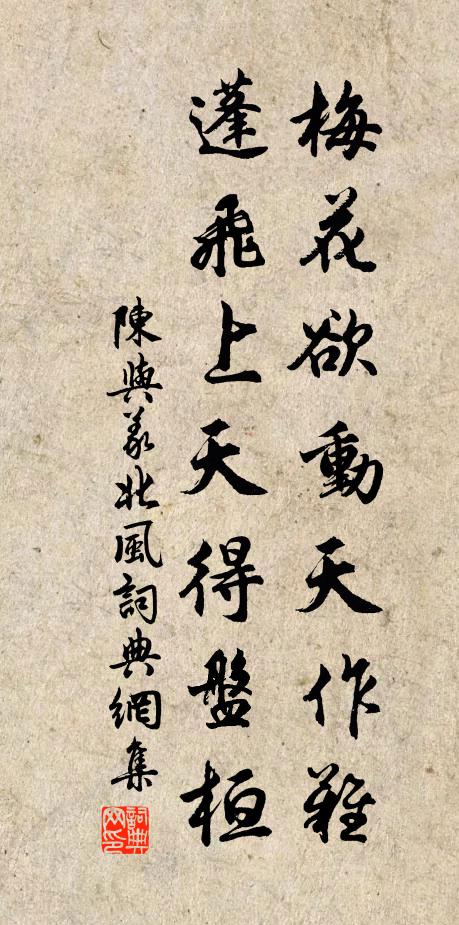 梅花欲動天作難
蓬飛上天得盤桓
陳與義北風詞典網集
詞典網印